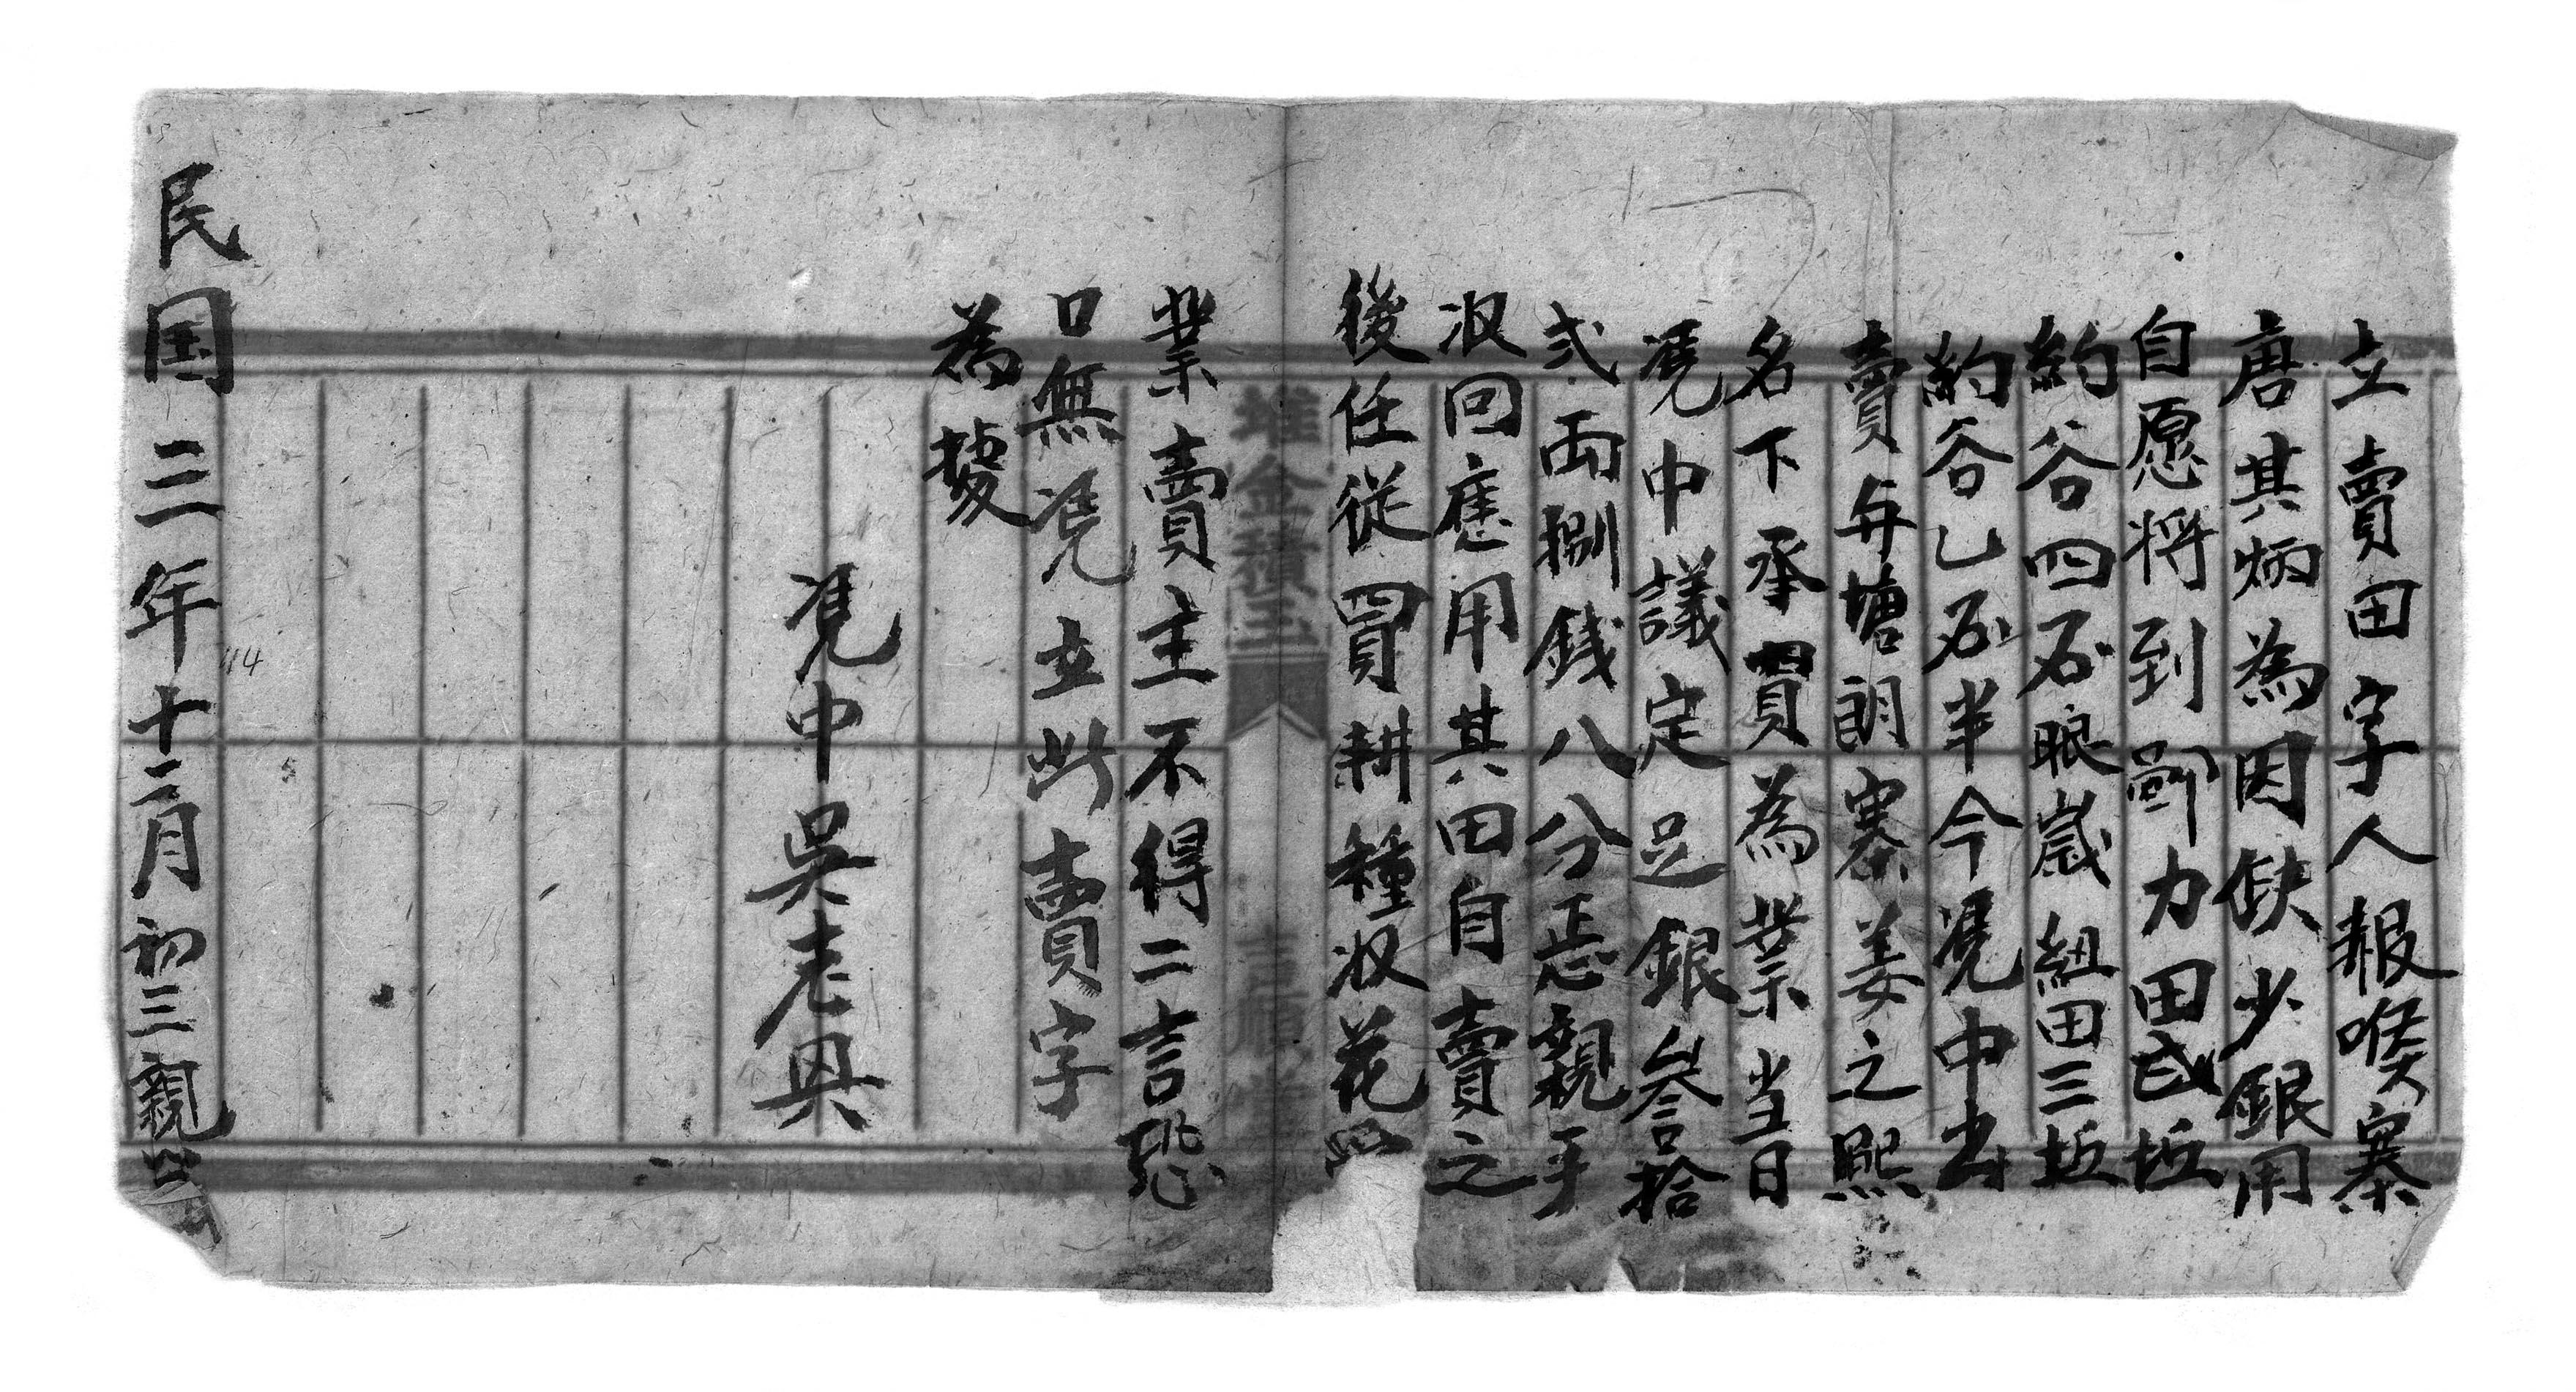 立賣田字人報喉寨
唐其炳為因缺少銀用
自愿將到罰力田弍坵
約谷四石眼嵗紐田三坵
約谷乙石半今凴中出
賣与塘朗寨姜之熙
名下承買為業當日
凴中議定足銀叁拾
弍両捌錢八分正恁親手
收回應用其田自賣之
後任從買耕種收花
業賣主不得二言恐
口無凴立此賣字
為㨿
凴中吳老與
民国三年十二月初三親
堆金積玉